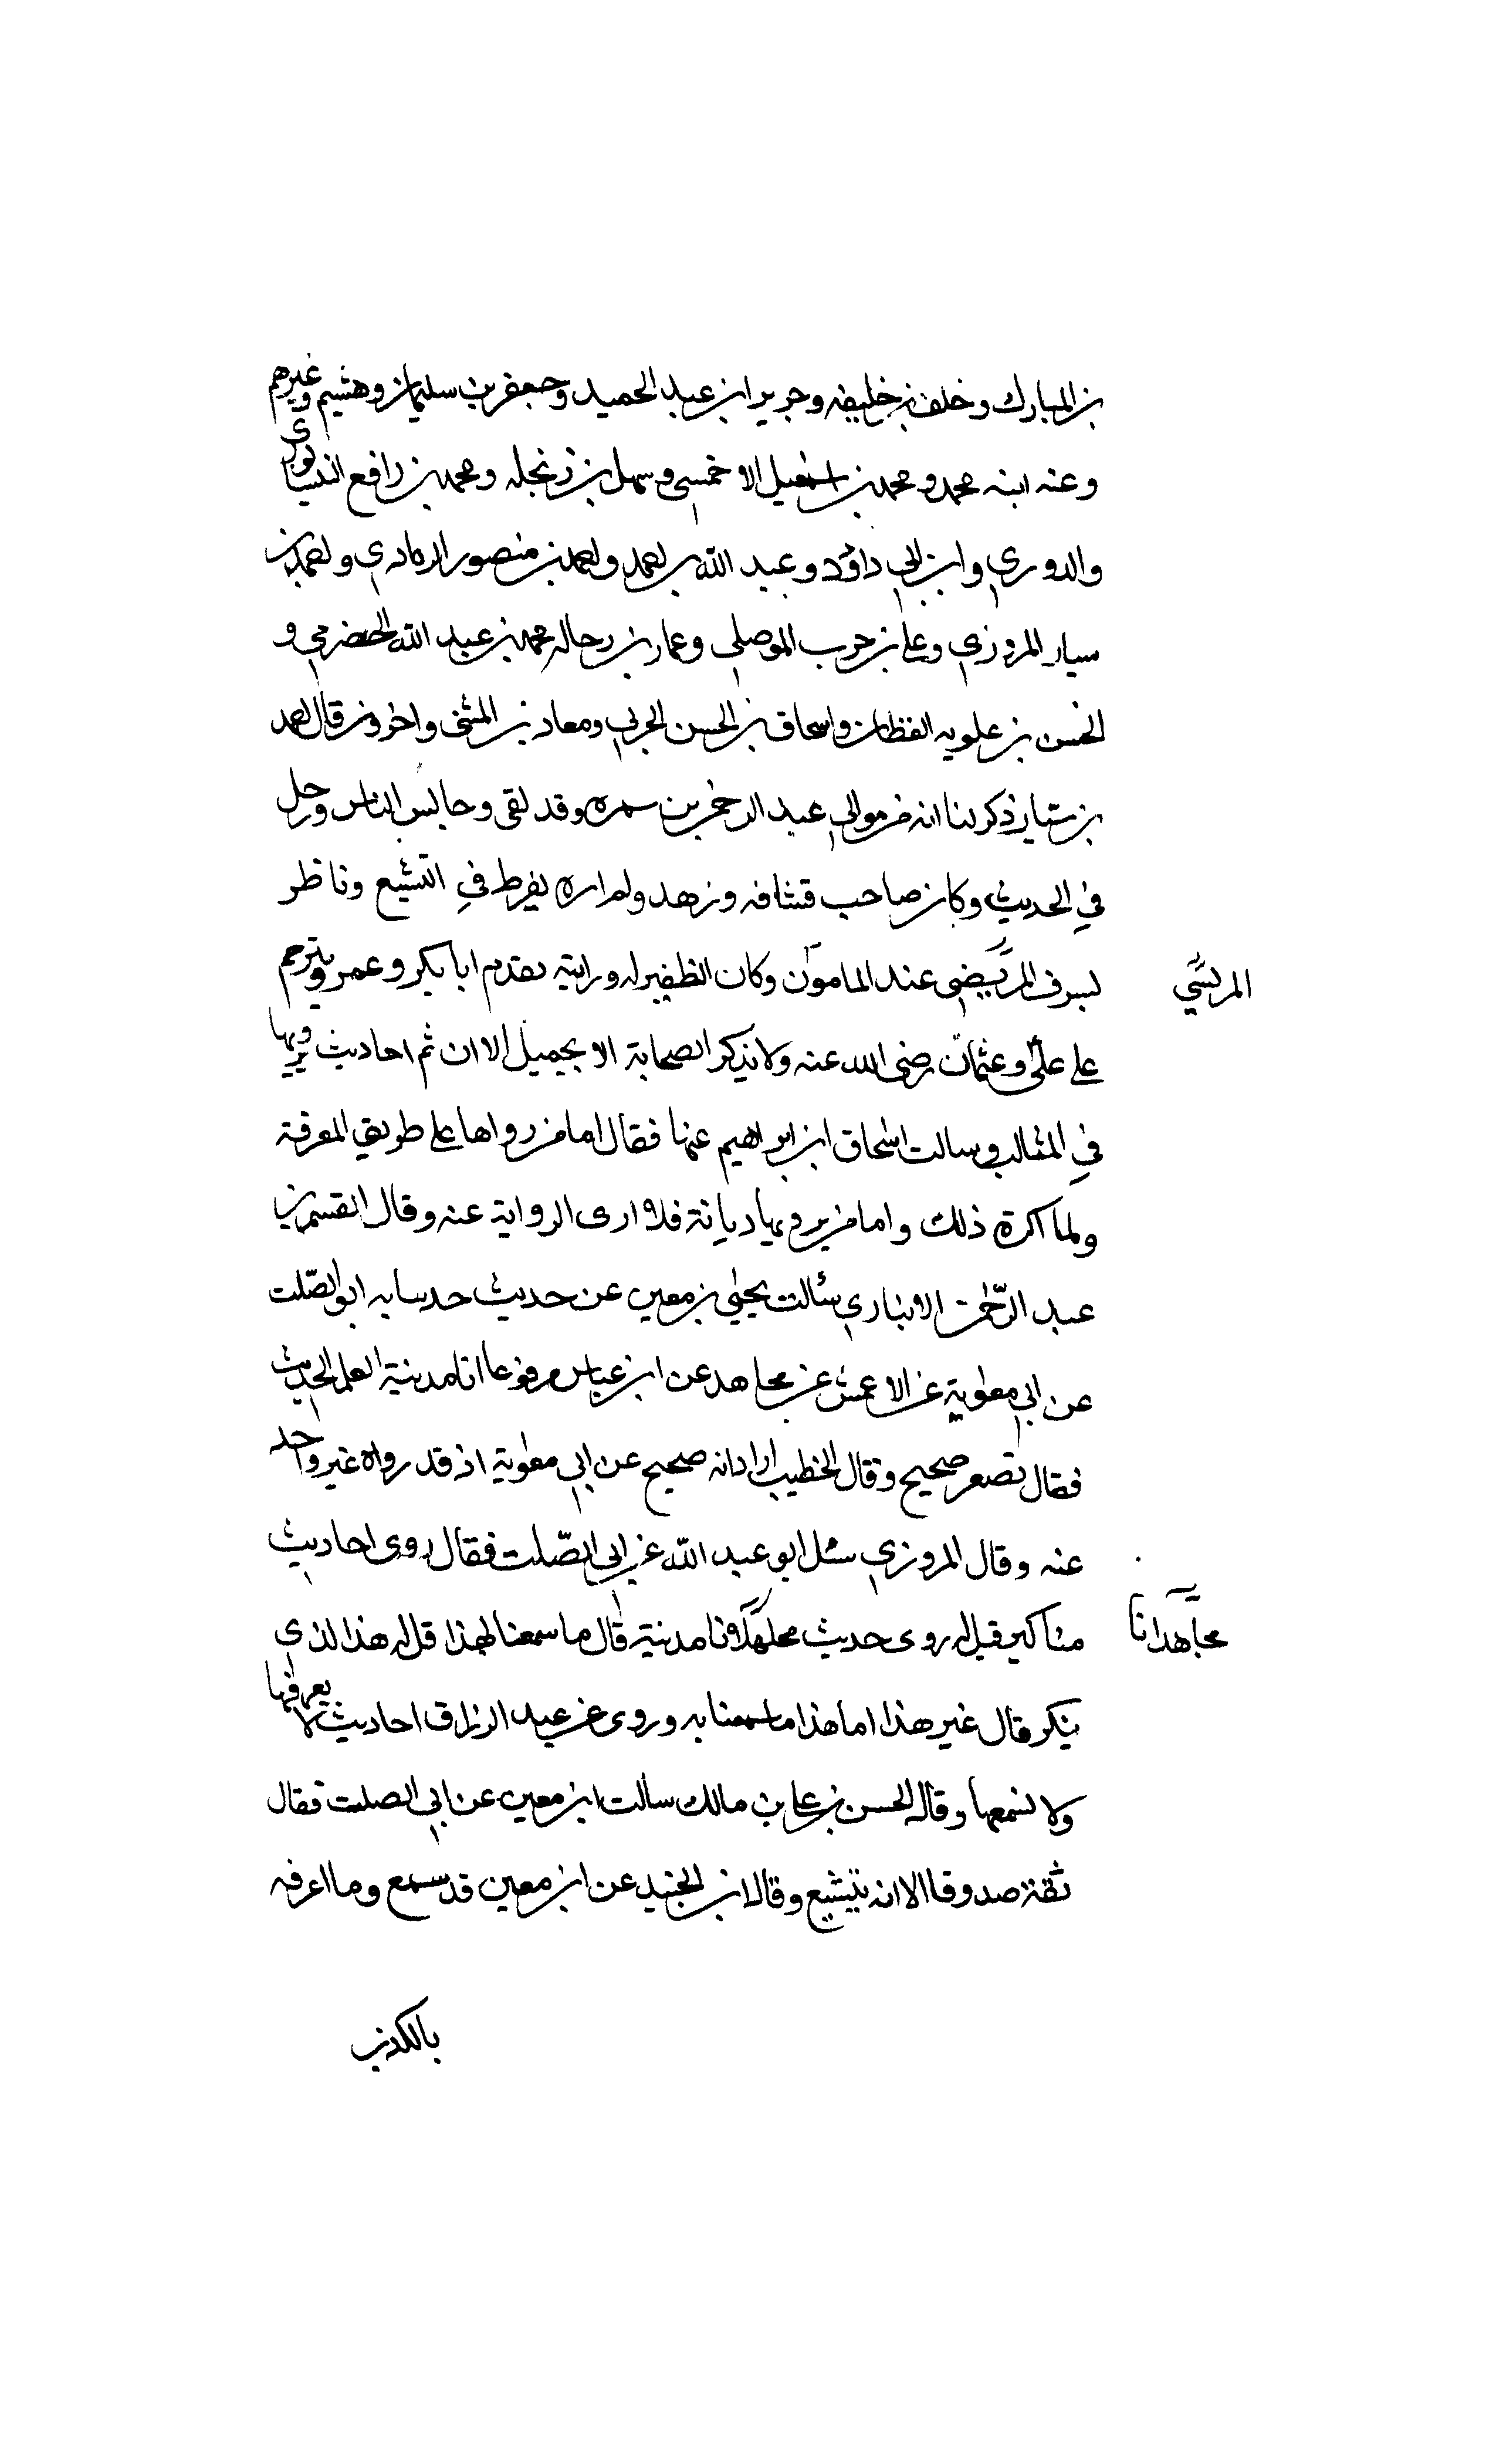 بن المبارك وخلف بن خليفه وجرير ابن عبد الحميد وجعفر بن سليمان وهشيم وغيرهم
وعنه ابنه محمد ومحمد بن اسمعيل الاخمسي وسهل بن زنجله ومحمد بن رافع النيسابوري
والدوري وابن ابي داؤد وعبد الله بن احمد واحمد بن منصور الرمادي واحمد بن
سيار المروزي وعلي بن حرب الموصلي وعمار بن رحاله محمد بن عبد الله الحضرمي و
الحسن بن علويه القطان واسحاق بن الحسن الحربي ومعاد بن المثنى واخرون قال احمد
بن سيار ذكر لنا انه من موالي عبد الرحمن بن سمره وقد لقى وجالس الناس ورحل
في الحديث وكان صاحب قشافه وزهد ولم اره يفرط في التشيع وناظر
بسرف المريضي عند المامون وكان الظفير له ورايته يقدم ابا بكر وعمر ويترحم
المريسي
على علي وعثمان رضى الله عنه ولا يذكر الصحابة الا بجميل الا ان ثم احاديث يرويها
في المثالب وسالت اسحاق ابن ابراهيم عنها فقال اما من رواها على طريق المعرفة
ولما اكرة ذلك واما من يرويها ديانة فلا ارى الرواية عنه وقال القسم بن
عبد الرحمن الانباري سئالت يحيى بن معين عن حديث حدسا به ابو الصلت
عن ابي معوية عن الاعمش عن مجاهد عن ابن عباس مرفوعا انا مدنية العلم الحديث
فقال صحيح وقال الخطيب اراد انه صحيح عن ابي معوية اذ قد رواه غير واحد
عنه وقال المروزي سئل ابو عبد الله عن ابي الصلت فقال روى احاديث
مناكير قيل له روى حديث مدنية قال ما سمعنا لهذا قل له هذا لذي
مجاهد انا
ينكر قال غير هذا اما هذا ما سمعنا به وروى عن عبد الرزاق احاديث لا يعرفها
ولا نسمعها وقال الحسن بن علي بن مالك سالت ابن معين عن ابي الصلت فقال
ثقة صدوقا الا انه يتشيع وقال ابن الجنيد عن ابن معين قد سمع وما اعرفه
بالكذب